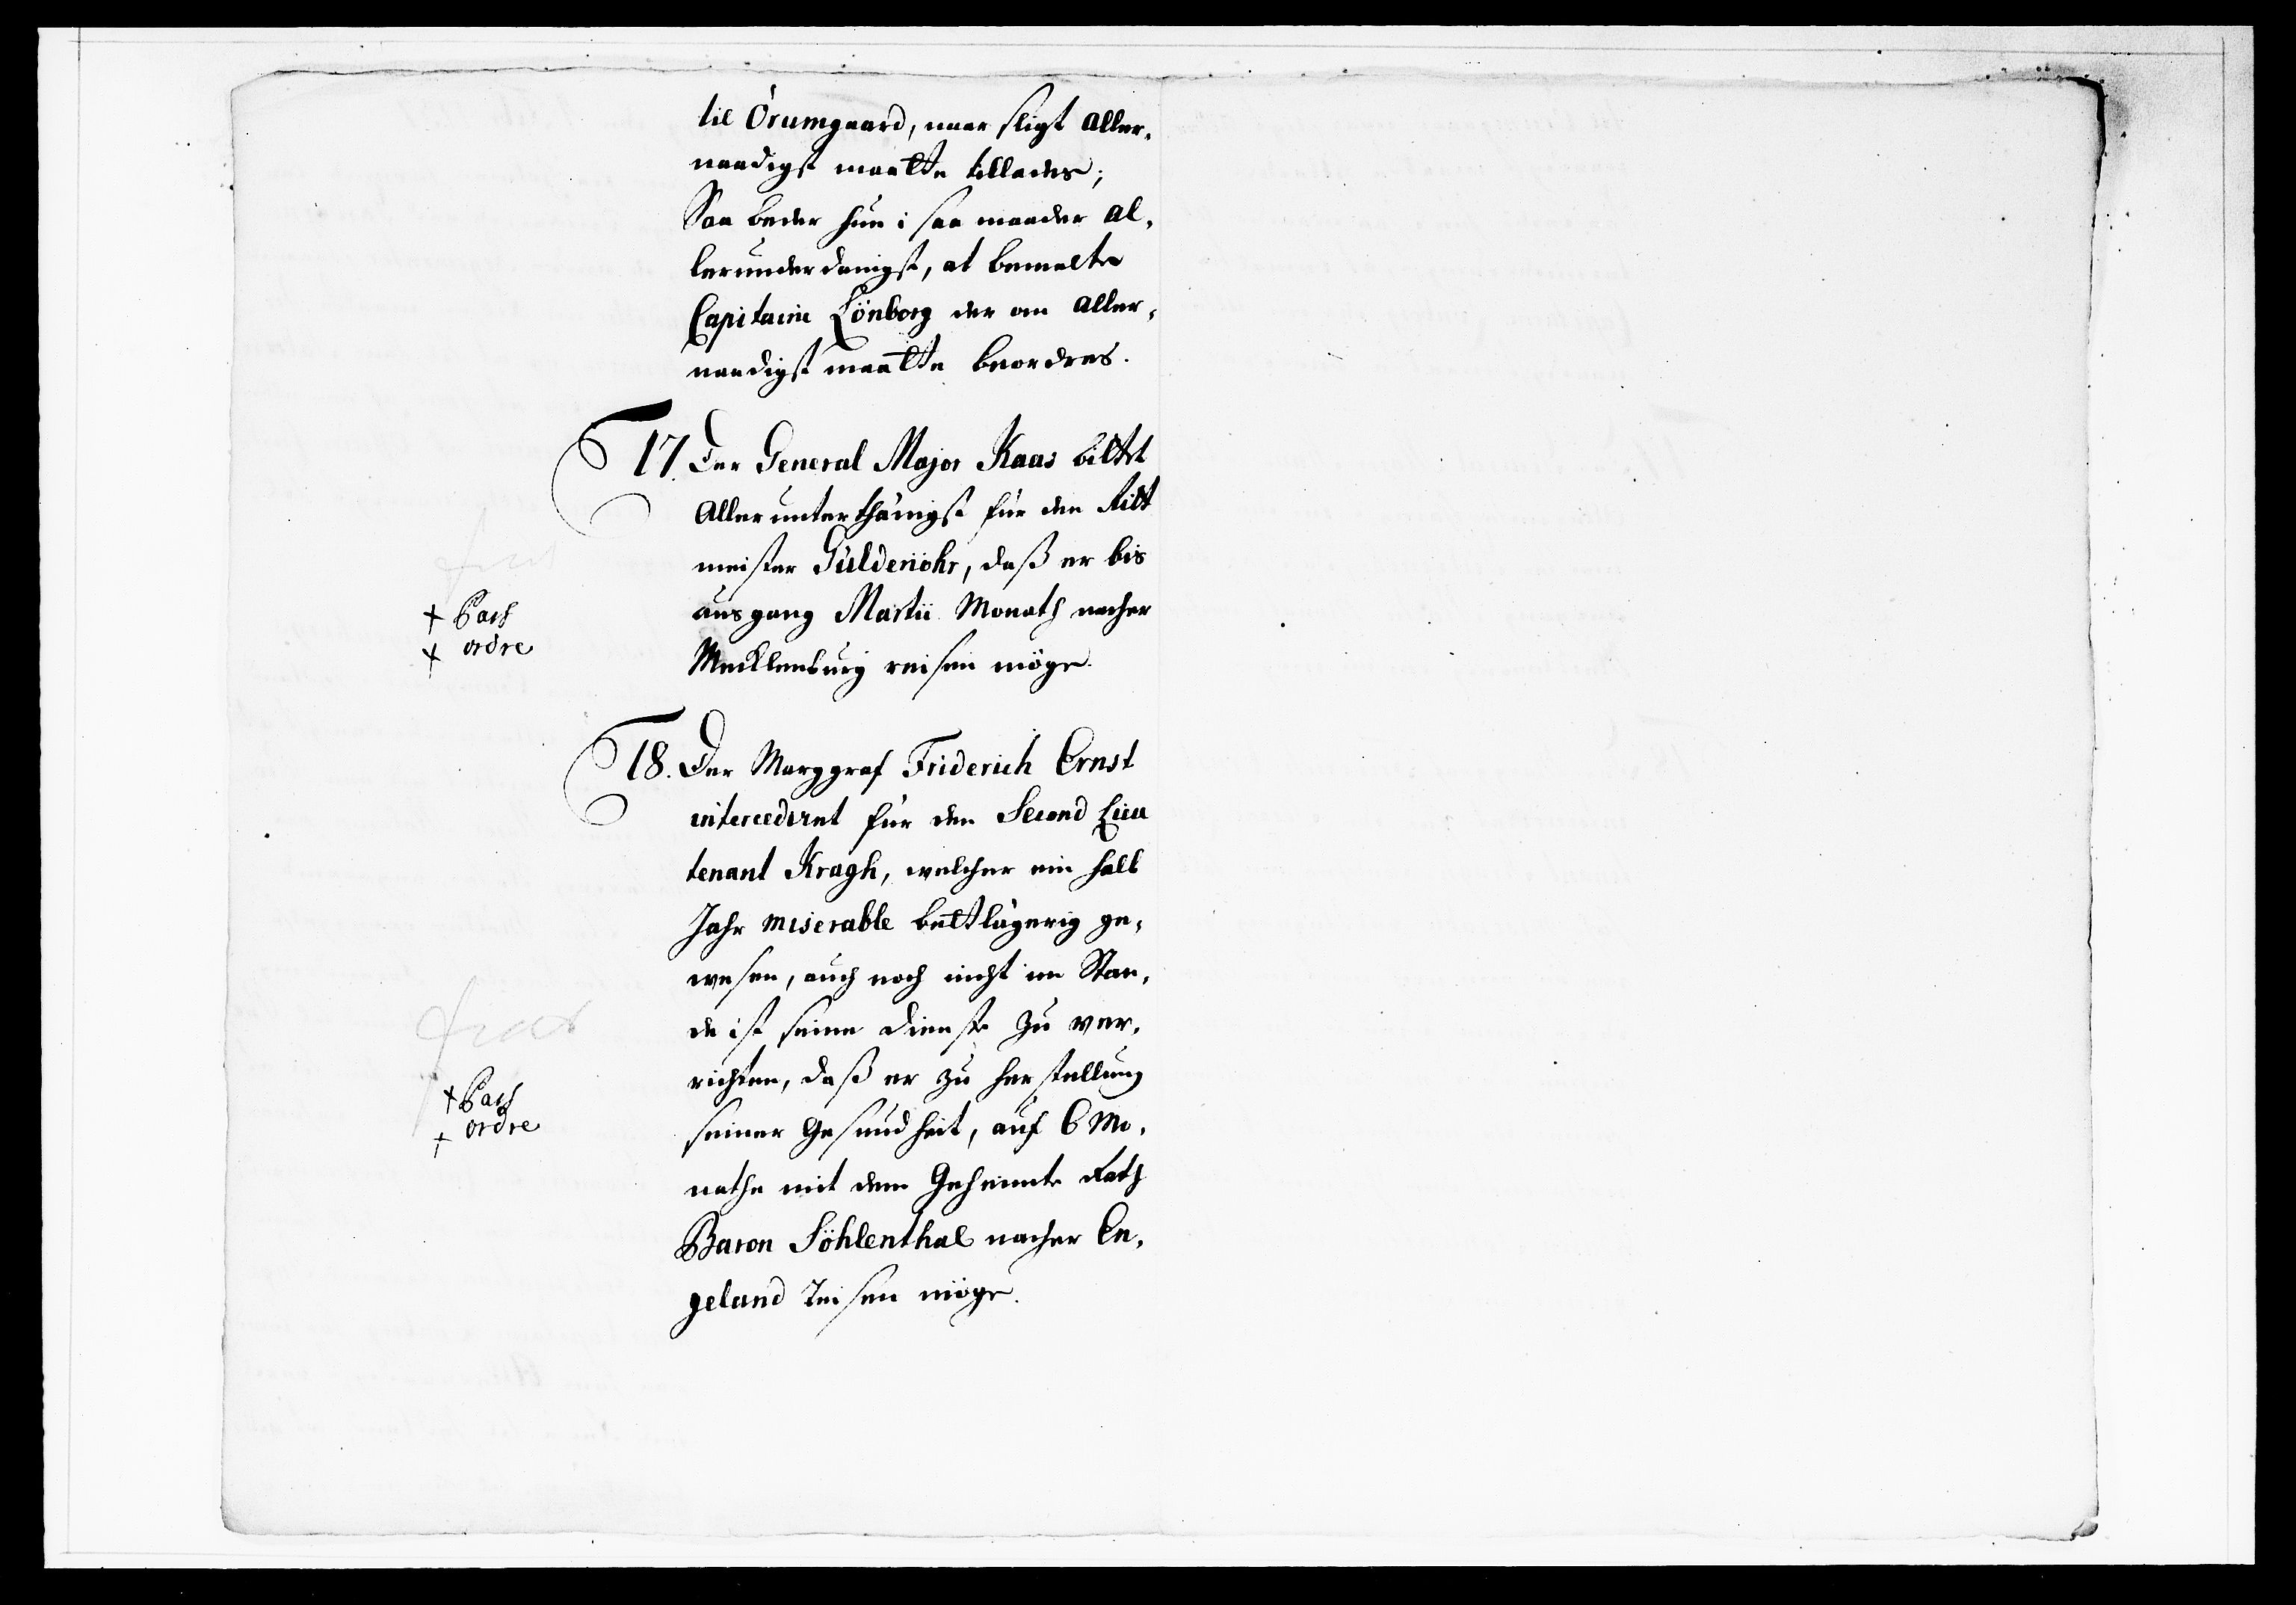 til Örumgaard, naar sligt aller-
naadigst maatte tillades;
Saa beder hun i saa maader al-
lerunderdanigst, at bemelte
Capitaine Lönborg der om aller-
naadigst maatte beordres.
17. Der General Major Kaas bittet
Allerunterthänigst für den Ritt
meister Güldenöhr, daß er bis
ausgang Martii Monath nacher
Mecklenburg reisen möge.
+ Pass
+ ordre
18. Der Marggraf Friderich Ernst
intercediret für den Second Lieu
tenant Kragh, welcher ein halb
Jahr miserable bettlägerig ge-
wesen, auch noch nicht im Stan-
de ist seine Dienste zu ver-
richten, daß er zu herstellung
seiner Gesundheit, auf 6 Mo-
nathe mit dem Geheimte Rath
Baron Söhlenthal nacher En-
geland Reisen möge.
+ Pass
+ ordre